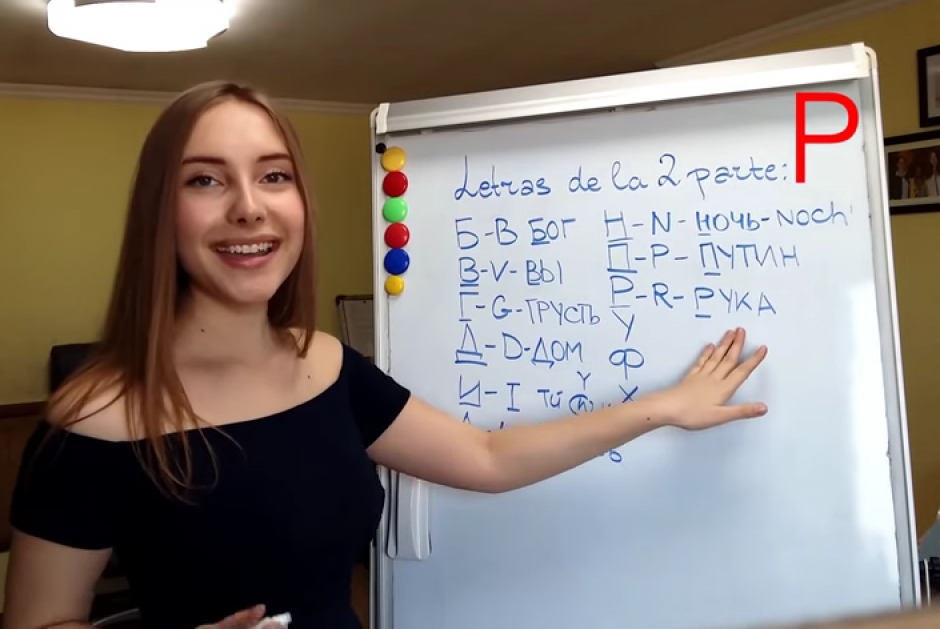 Р
Letras de la 2 parte:
Б-В БОГ
В-V-ВЫ
Г-G-ГРУСТЬ
Д-D-ДОМ
И-I Tú Y
Н-N-НОЧЬ-NOCH'
П-P-ПУТИН
Р-R-РУКА
У
Ф
Х